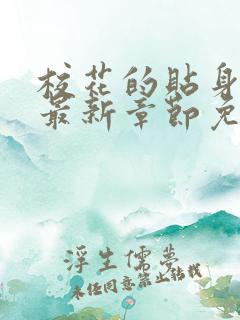 校花的贴身
最新章节免
浮生儒梦
未经同意禁止转载